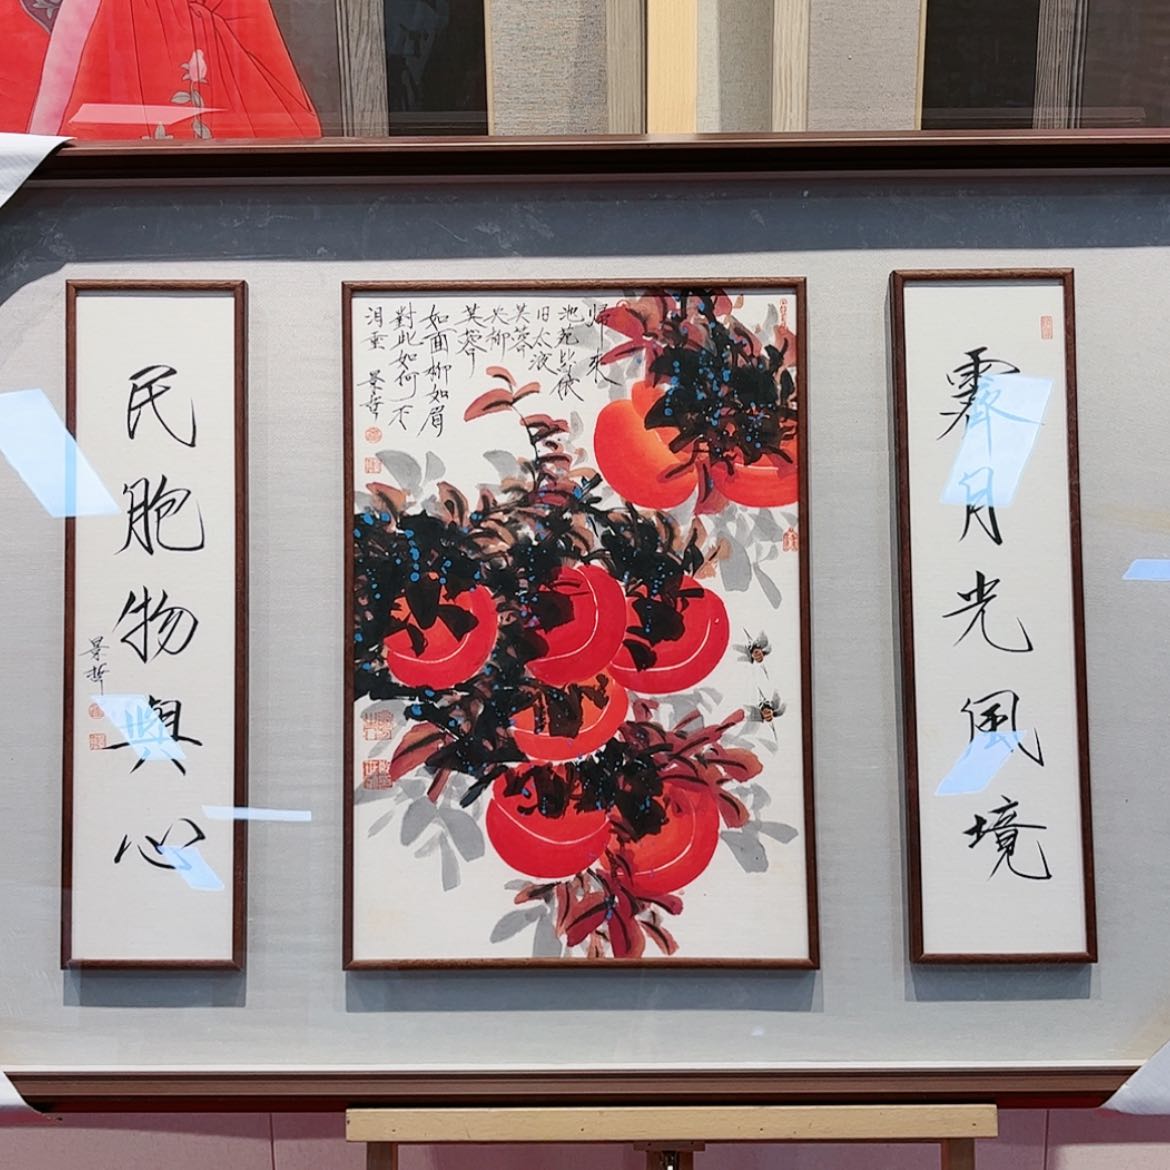 霽月光風境
歸來
池苑皆依
旧太液
芙蓉
未柳
芙蓉
如面柳如眉
對此如何不
泪垂
景哲
民胞物與心
景哲